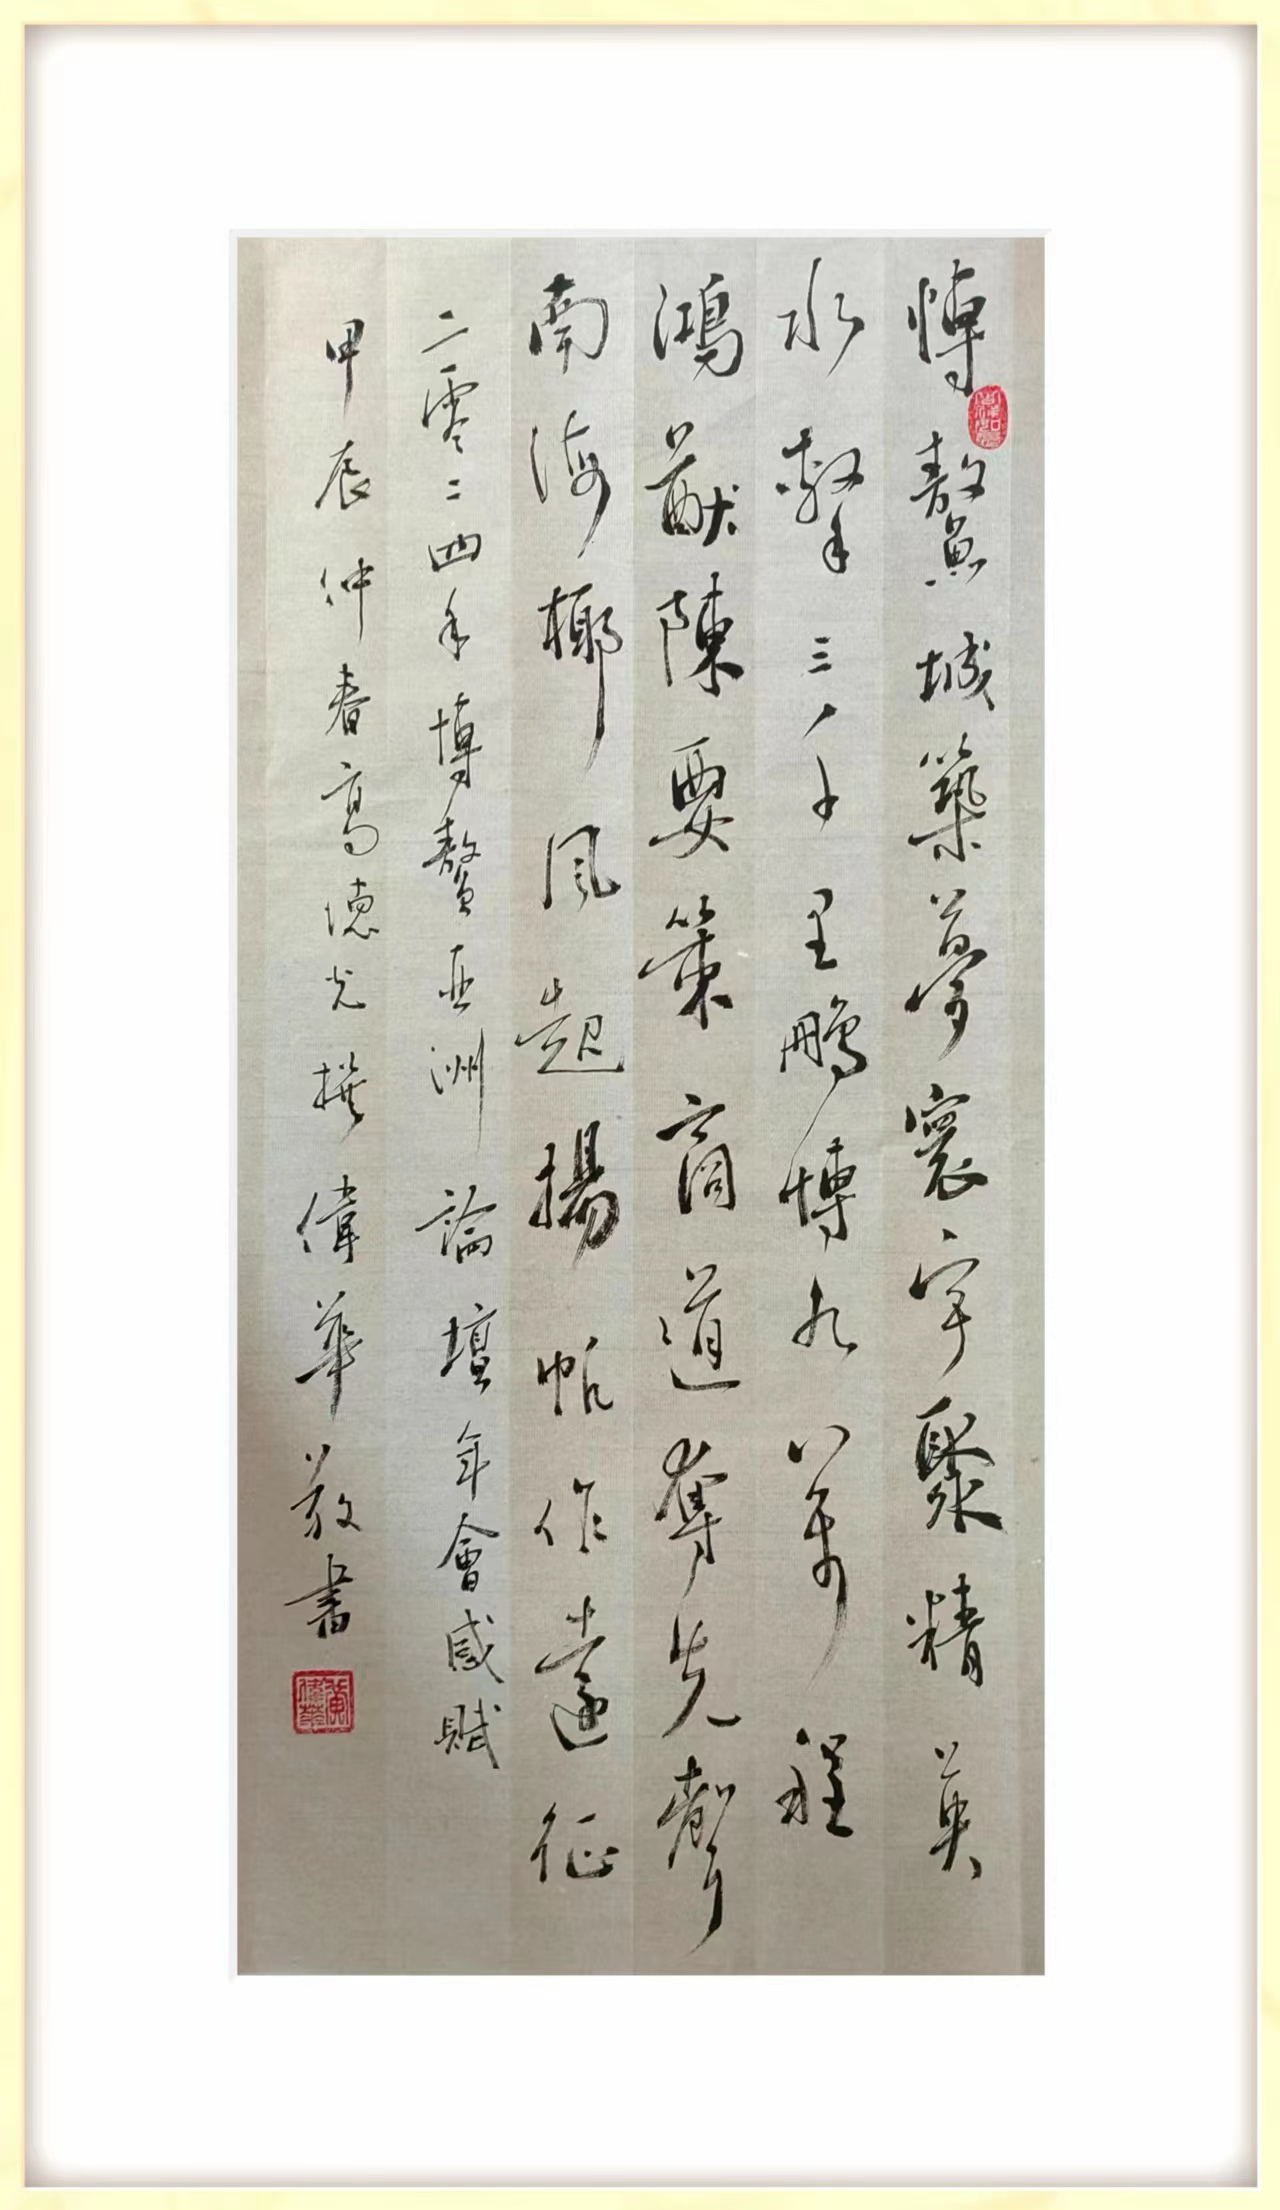 愽鰲城築夢寰宇聚精英
水擊三千里鵬愽九萬程
鴻猷陳要策商道奪先聲
南海椰風起揚帆作遠征
二零二四年博鰲亞洲論壇年會感賦
甲辰仲春高德光撰偉華敬書